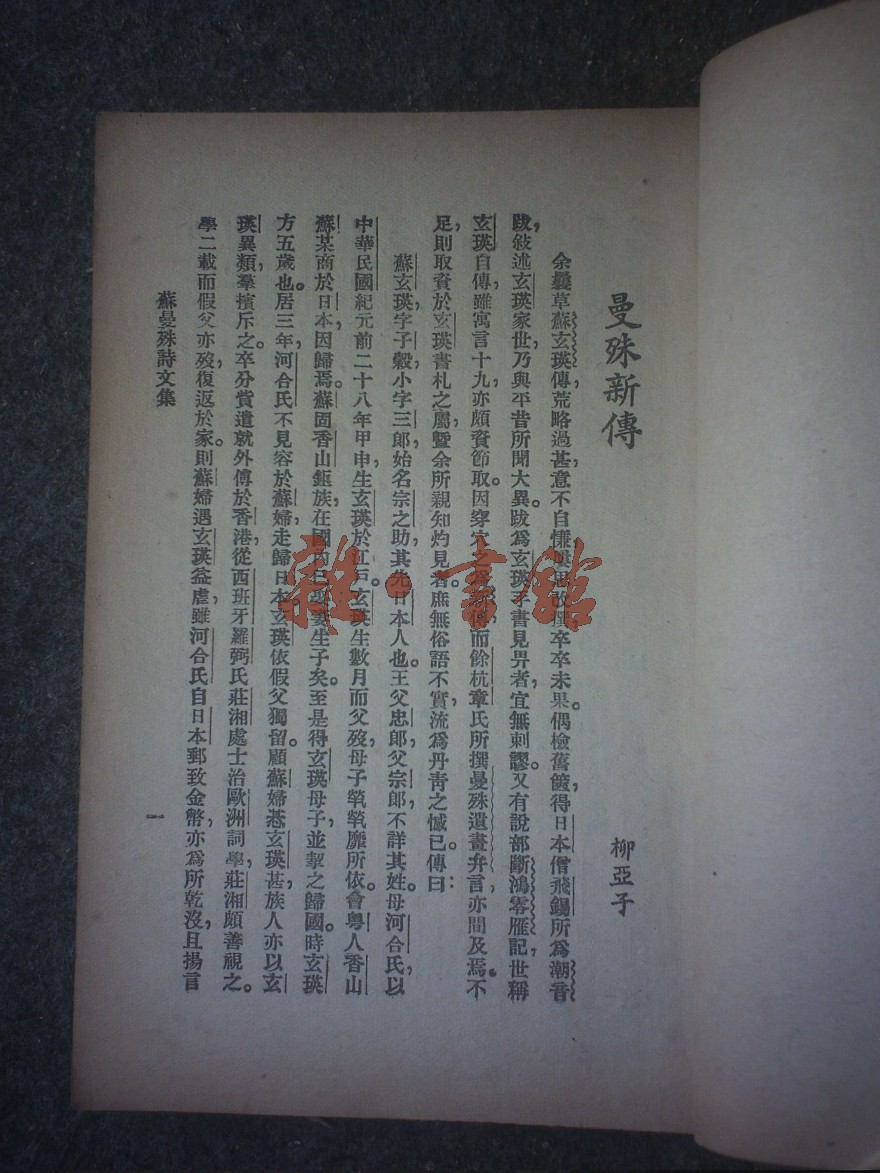 曼殊新傳
柳亞子
余曩草蘇玄瑛傳，荒略過甚，意不自慊，卒卒未果。偶檢舊篋，得日本僧飛錫所爲潮音
跋，敍述玄瑛家世，乃與平昔所聞大異。跋爲玄瑛手書見畀者，宜無刺謬。又有說部斷鴻零雁記，世稱
玄瑛自傳，雖寓言十九，亦頗資節取。因穿穴之，爲新傳。而餘杭章氏所撰曼殊遺畫弁言，亦間及焉。不
足，則取資於玄瑛書札之屬，曁余所親知灼見者。庶無俗語不實，流爲丹靑之憾已。傳曰：
蘇玄瑛，字子穀，小字三郎，始名宗之助，其先日本人也。王父忠郎，父宗郎，不詳其姓。母河合氏，以
中華民國紀元前二十八年甲申，生玄瑛於江戶。玄瑛生數月而父歿，母子煢煢靡所依。會粵人香山
蘇某商於日本，因歸焉。蘇固香山鉅族，在國內已娶妻生子矣。至是得玄瑛母子，並挈之歸國。時玄瑛
方五歲也。居三年，河合氏不見容於蘇婦，走歸日本。玄瑛依假父獨留。顧蘇婦惎玄瑛甚，族人亦以玄
瑛異類，羣擯斥之。卒分貲遣就外傅於香港，從西班牙羅弼氏莊湘處士治歐洲詞學，莊湘頗善視之。
學二載而假父亦歿，復返於家。則蘇婦遇玄瑛益虐，雖河合氏自日本郵致金幣，亦爲所乾沒，且揚言
蘇曼殊詩文集
一
雜·書館